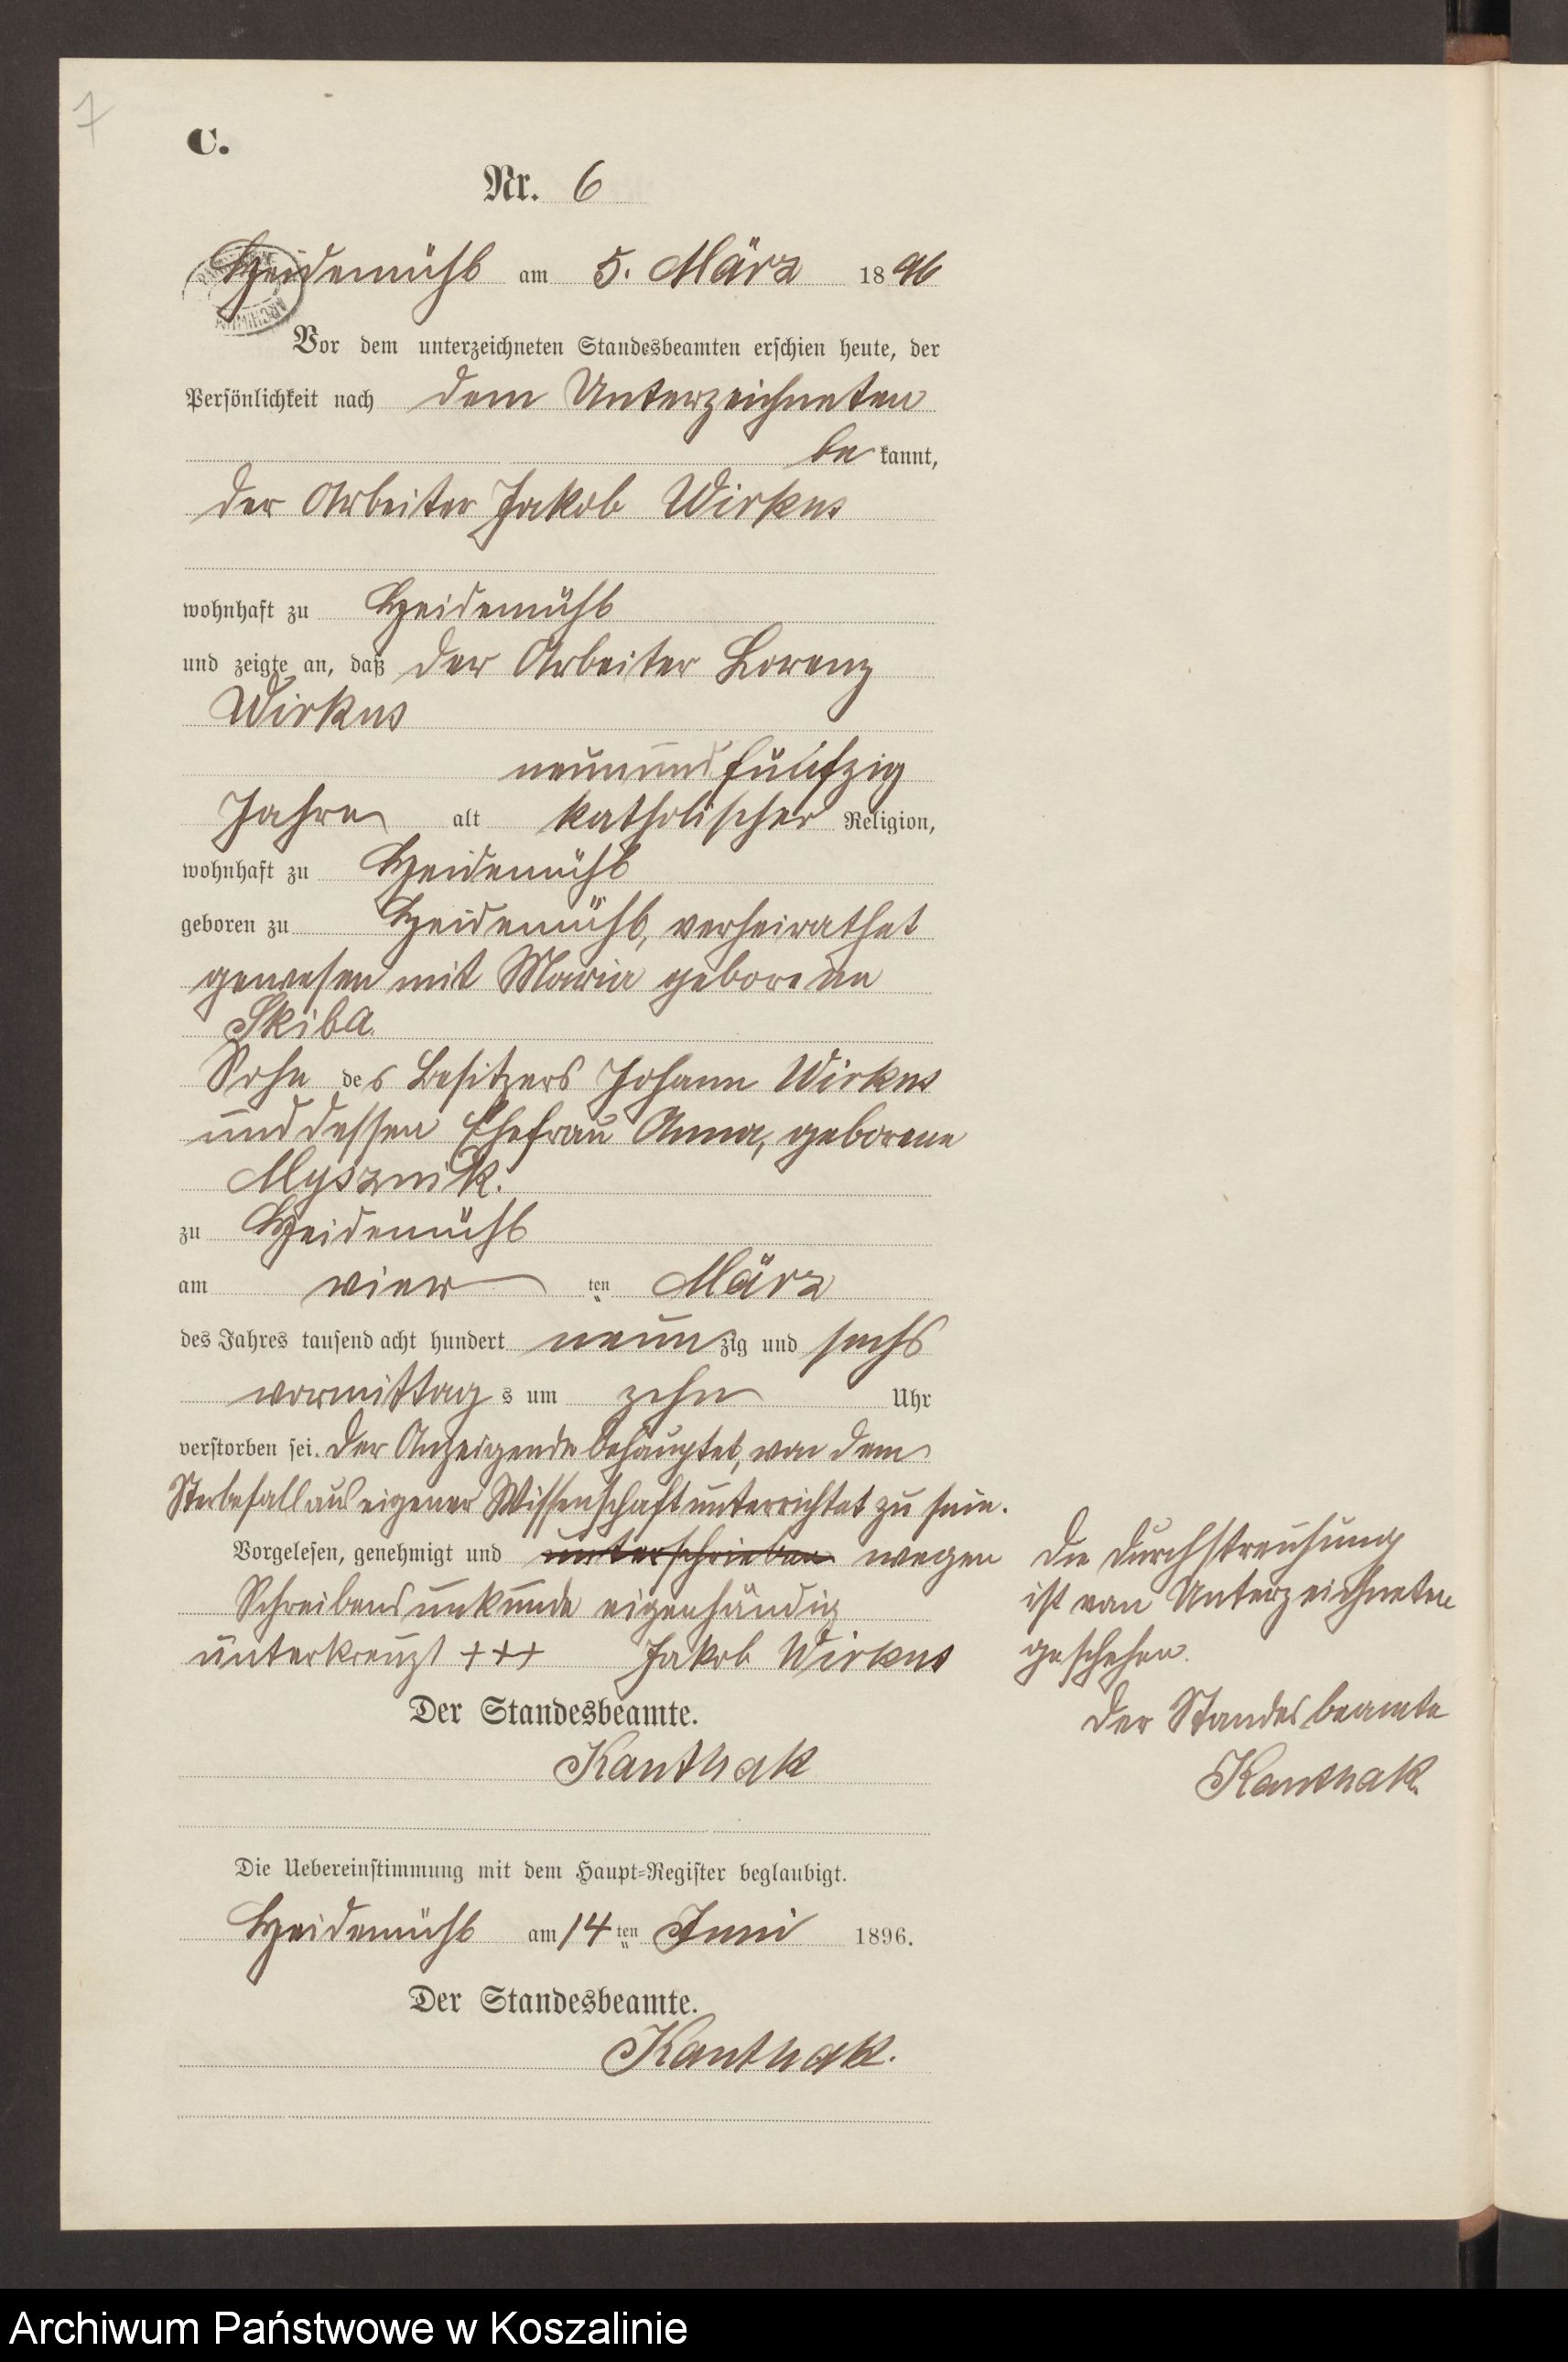 7
C.
Nr. 6
Heidemühl am 5. März 1896
Vor dem unterzeichneten Standesbeamten erschien heute, der
Persönlichkeit nach dem Unterzeichneten
be kannt,
der Arbeiter Jakob Wirkus
wohnhaft zu Heidemühl
und zeigte an, daß der Arbeiter Lorenz
Wirkus
neunundfünfzig
Jahre alt katholischer Religion,
wohnhaft zu Heidemühl
geboren zu Heidemühl, verheirathet
gewesen mit Maria geborene
Skiba.
Sohn des Besitzers Johann Wirkus
und dessen Ehefrau Anna, geborene
Mysznik.
zu Heidemühl
am vier ten März
des Jahres tausend acht hundert neunzig und sechs
vormittags um zehn Uhr
verstorben sei. Der Anzeigende behauptet, von dem
Sterbefall aus eigener Wissenschaft unterrichtet zu sein.
Vorgelesen, genehmigt und unterschrieben wegen
Schreibensunkunde eigenhändig
unterkreuzt +++ Jakob Wirkus
Der Standesbeamte.
Kanthak
Die Durchstreichung
ist vom Unterzeichneten
geschehen.
Der Standesbeamte
Kanthak.
Die Uebereinstimmung mit dem Haupt-Register beglaubigt.
Heidemühl am 14ten Juni 1896.
Der Standesbeamte.
Kanthak.
Archiwum Państwowe w Koszalinie